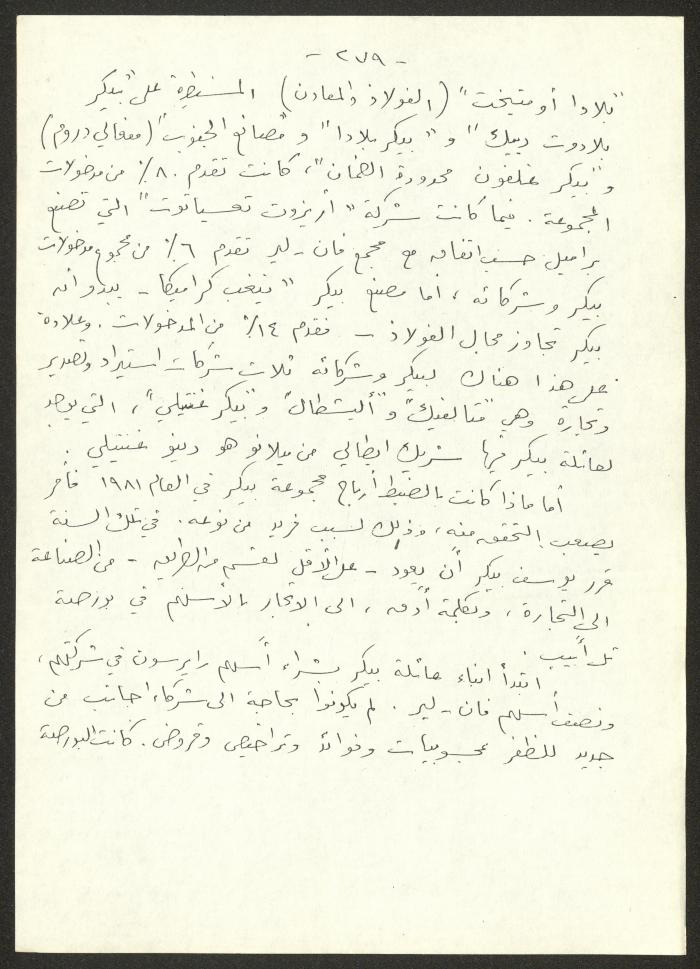 - ٢٧٩ -
"بلادا أو متيخت" (الفولاذ والمعادن) المسيطرة على "بيكر
بلادوت دبيك" و "بيكر بلادا" و "مصانع الجنوب" (مفعالي دروم)
و "بيكر غلفون محدودة الضمان"، كانت تقدم ٨٠٪ من مدخولات
المجموعة. فيما كانت شركة "أريزوت تعسياتوت" التي تصنع
براميل حسب اتفاق مع مجمع فان - لير تقدم ٦٪ من مجموع مدخولات
بيكر وشركائه، أما مصنع بيكر "نيغب كراميكا - يبدو أنه
بيكر تجاوز مجال الفولاذ - فقدم ١٤٪ من المدخولات. وعلاوة
على هذا هناك لبيكر وشركائه ثلاث شركات استيراد وتصدير
وتجارة وهي "متالفيك" و "ألبشطال" و "بيكر غنتيلي"، التي يوجد
لعائلة بيكر فيها شريك ايطالي من ميلانو هو دينو غنتيلي.
أما ماذا كانت بالضبط أرباح مجموعة بيكر في العام ١٩٨١ فأمر
يصعب التحقق منه، وذلك لسبب فريد من نوعه. في تلك السنة
قرر يوسف بيكر أن يعود - على الأقل لقسم من الطريق - من الصناعة
الى التجارة، وبكلمة أدق، الى الاتجار بالأسهم في بورصة
تل أبيب.
ابتدأ ابناء عائلة بيكر بشراء أسهم رايرسون في شركتهم،
ونصف أسهم فان - لير. لم يكونوا بحاجة الى شركاء اجانب من
جديد للظفر بمحسوبيات وفوائد وتراخيص وقروض. كانت البورصة